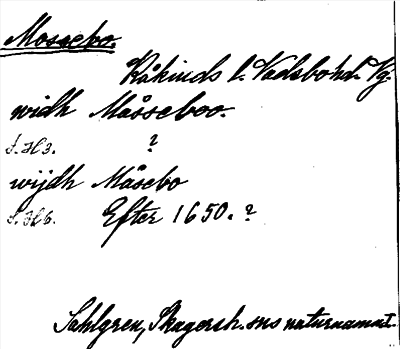 Mossebo.
Råkinds l. Vadsbohd. Vg.
widh Måsseboo.
S. H3. ?
wijdh Måsebo
S. H6. Efter 1650. ?
Sahlgren, Skagersh. sns naturnamn I.